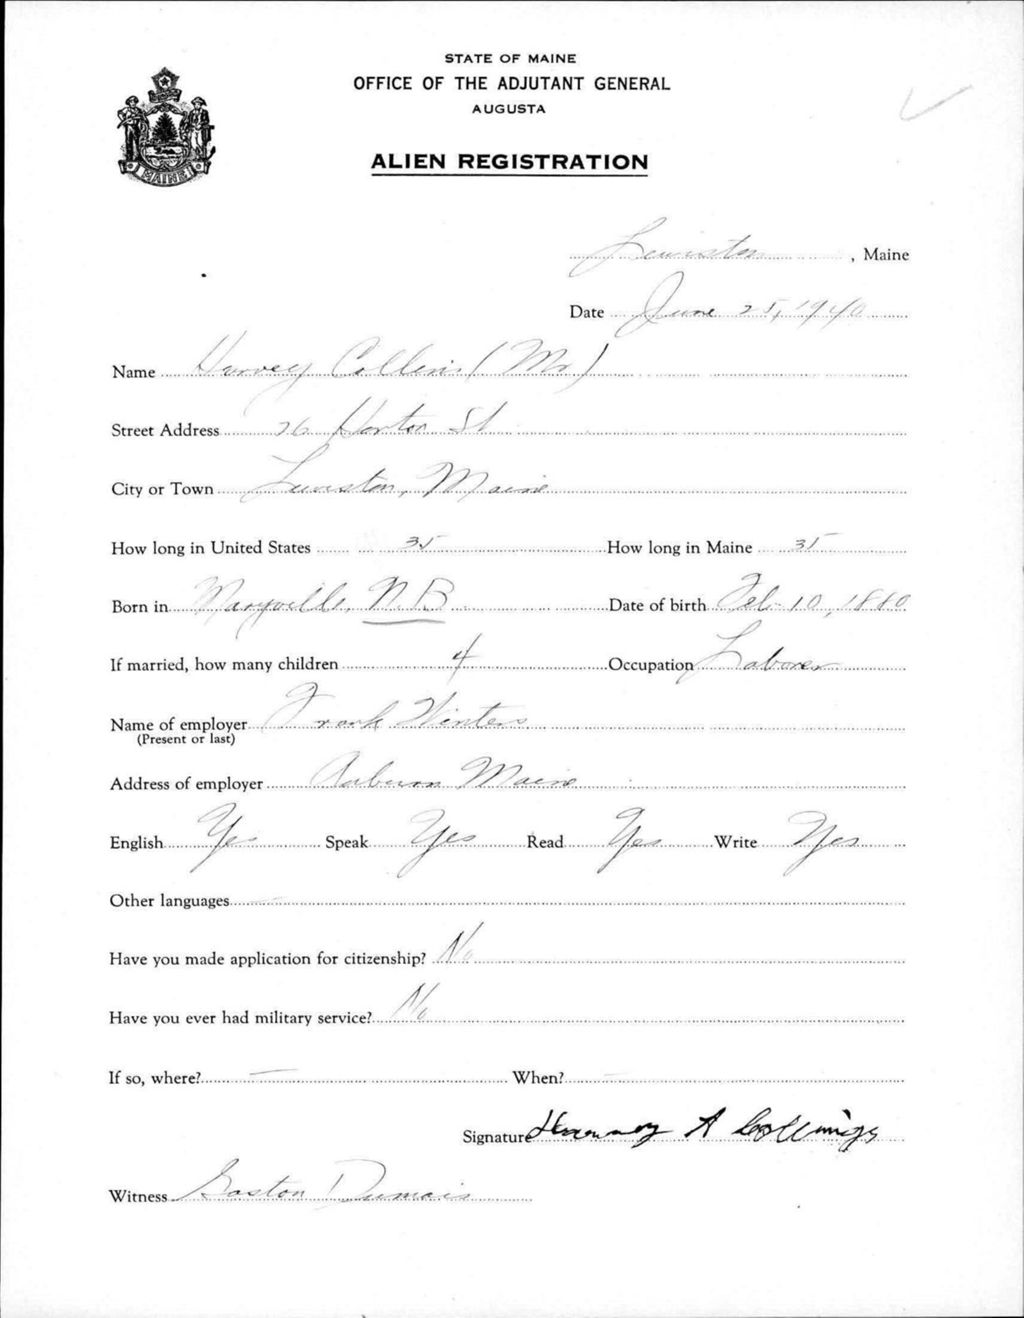 STATE OF MAINE
OFFICE OF THE ADJUTANT GENERAL
AUGUSTA
MAINE
ALIEN REGISTRATION
Lewiston, Maine
Date June 25, 1940
Name Harvey Collins (Mr)
Street Address 76 Horton St
City or Town Lewiston, Maine
How long in United States 35 How long in Maine 35
Born in Maryville, N.B. Date of birth Feb. 10, 1880
If married, how many children 4 Occupation Laborer
Name of employer Frank Winters
(Present or last)
Address of employer Auburn Maine
English Yes Speak Yes Read Yes Write Yes
Other languages —
Have you made application for citizenship? No
Have you ever had military service? No
If so, where? — When? —
Signature Harvey A Collings
Witness Gaston Dumais